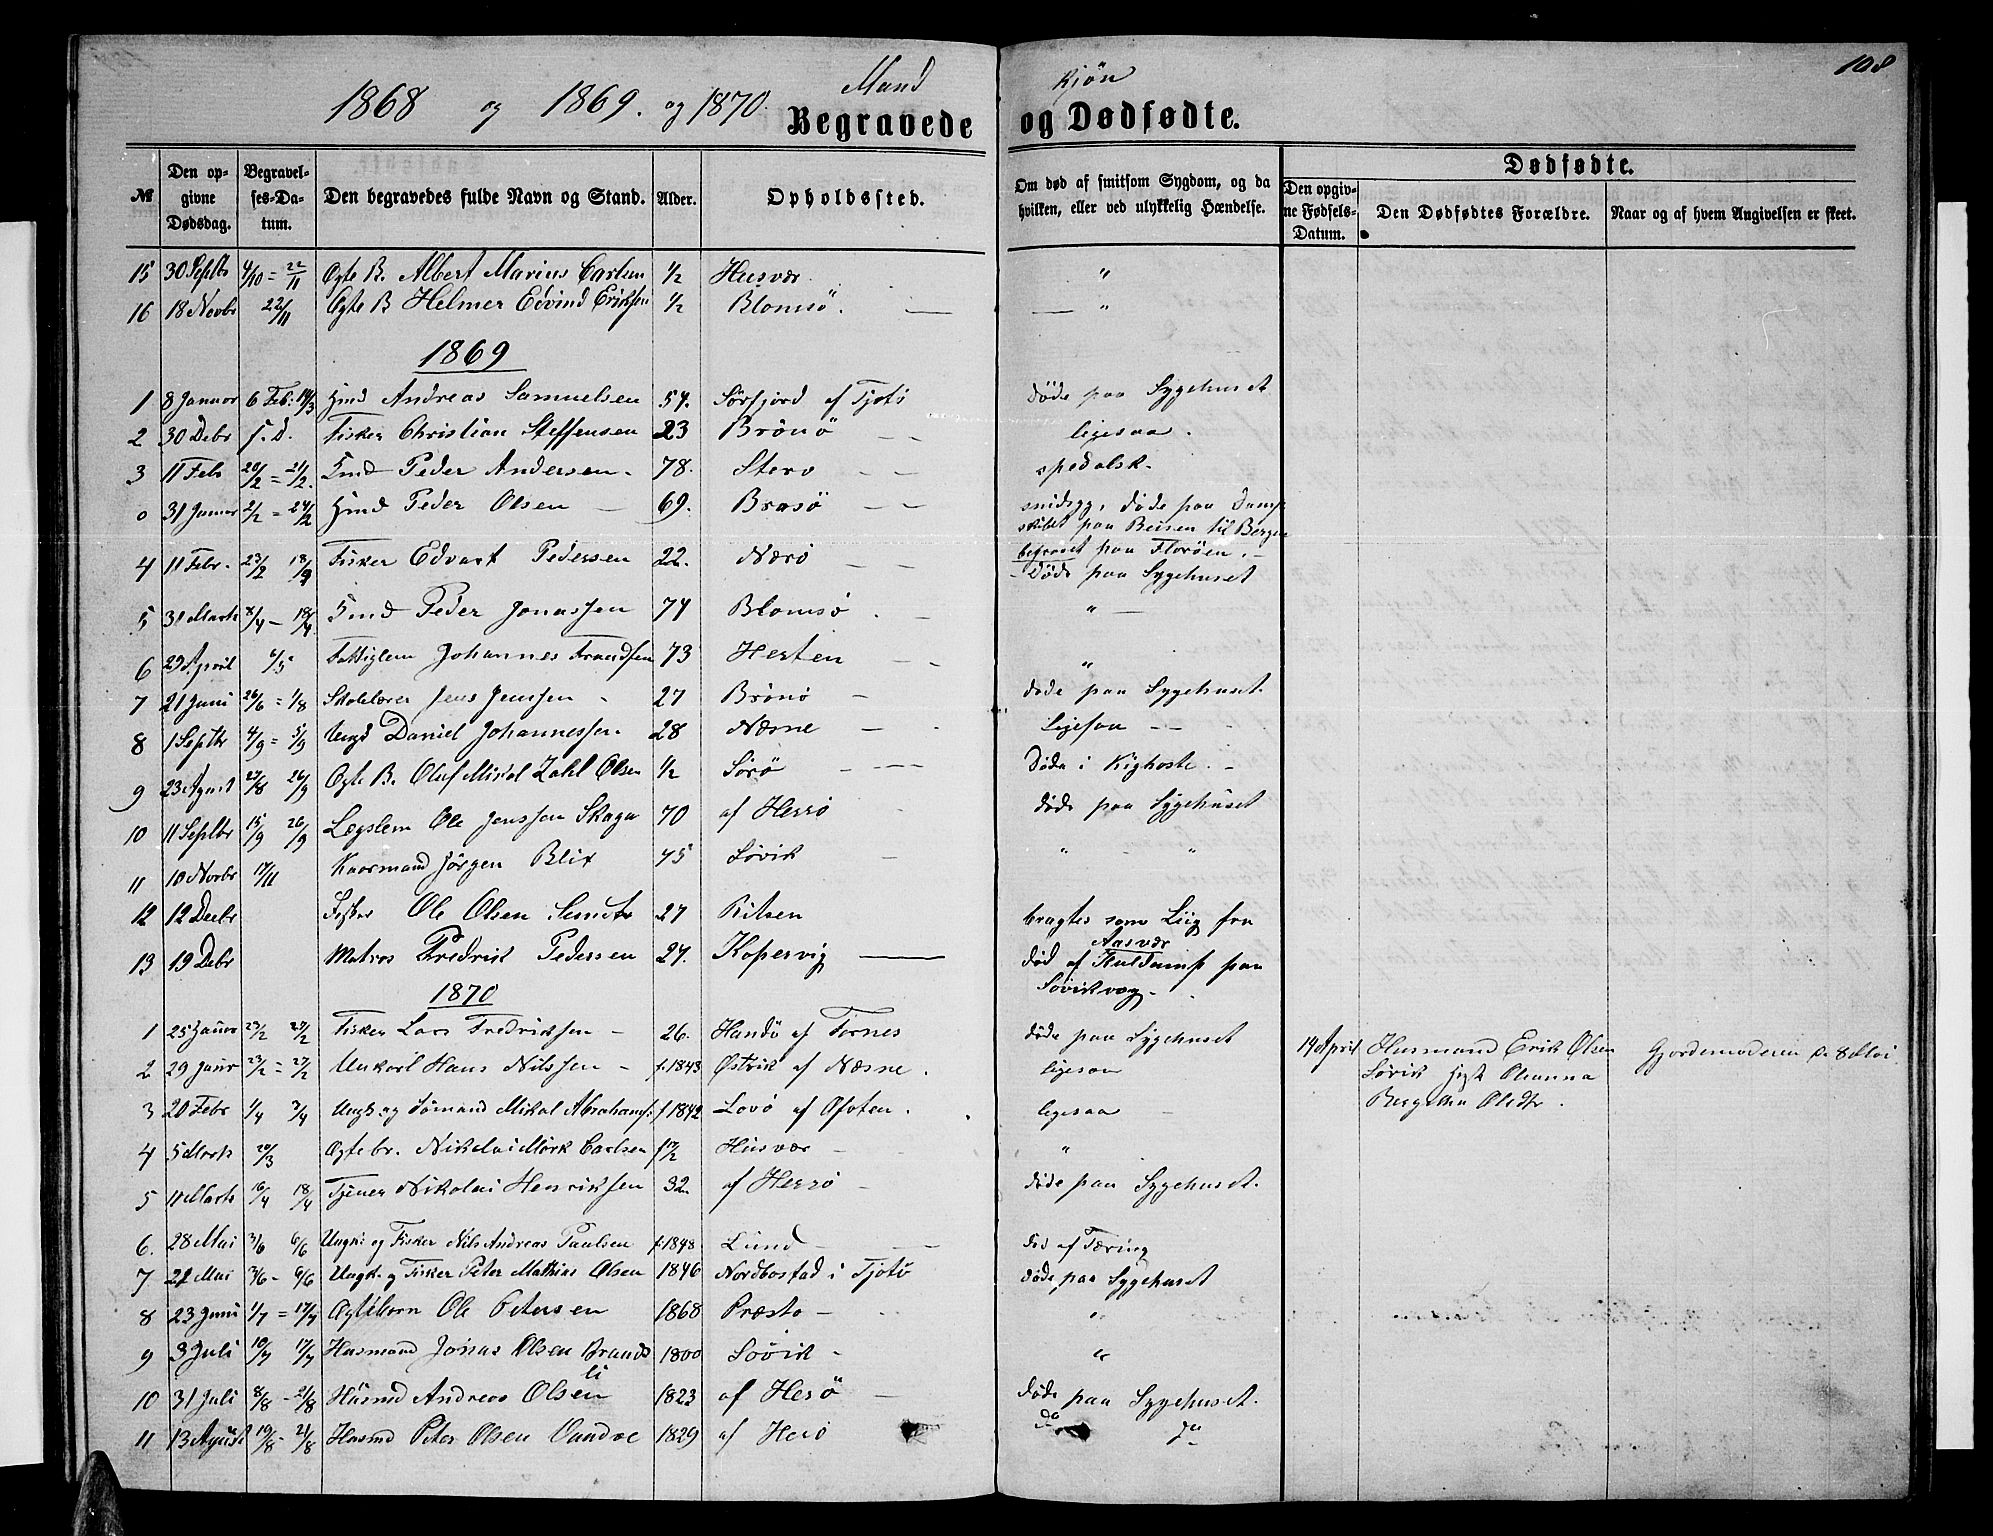 1868 og 1869. og 1870. Mand Kjön 108
Begravede og Dødfødte.
№ Den opgivne Dødsdag. Begravelses-Datum. Den begravedes fulde Navn og Stand. Alder. Opholdssted. Om død af smitsom Sygdom, og da hvilken, eller ved ulykkelig Hændelse. Dødfødte. Den opgivne Fødsels-Datum. Den Dødfødtes Forældre. Naar og af hvem Angivelsen er skeet.
15 30 Septbr 4/10 = 22/11 Ægte B. Albert Marius Carlsen 1/2 Husvær. "
16 18 Novbr 22/11 Ægte B Helmer Edvind Eriksen 1/2 Blomsö. — — "
1869
1 8 Januar 6 Feb. 14/3 Hmd Andreas Samuelsen 54. Sörfjord af Tjotö döde paa Sygehuset
2 30 Debr s. D. Fisker Christian Steffensen 23 Brönö — — ligesaa.
3 11 Febr 20/2 = 21/2. Hmd Peder Andersen. 78. Stero — — spedalsk.
0 31 Januar 2/2 = 24/2 Hmd Peder Olsen — 69. Brasö — — döde paa Damp
skibet paa Reisen til Bergen
begravet paa Floröen. —
4 11 Febr. 23/2 18/9 Fisker Edvart Pedersen 22. Nærö — — Döde paa Sygehuset
5 31 Marts 8/4 — 18/4 Peder Jonassen 74 Blomsö. — " —
6 29 April 6/5 Fattiglem Johannes Trondsen 73 Hesten — — "
7 21 Juni 26/6 = 1/8 Skolelærer Jens Jenssen 27 Brönö — döde paa Sygehuset.
8 1 Septbr 4/9 = 5/9 Ungk Daniel Johannessen. 28 Næsne — - ligesaa — —
9 23 August 27/8 26/9 Ægte B. Oluf Mikal Zahl Olsen 1/2 Sörö — — Döde i Kighoste. —
10 11 Septbr 15/9 26/9 Lægslem Ole Jenssen Skaga 70 af Herrö döde paa Sygehuset
11 10 Novbr 17/11 Kaarmand Jörgen Blix 75 Sövik — " "
12 12 Decbr Fisker Ole Olsen 27 bragtes som Liig fra
Aasvær
13 19 Debr Matros Fredrik Pedersen 24. Kopervig — död af Kuldamp paa
Sövikvag. —
1870
1 25 Januar 23/2 27/2 Fisker Lars Fredriksen — 26. Handö af Tornes döde paa Sygehuset
2 29 Janr 23/2 = 27/2 Unkarl Hans Nilssen — f. 1843 Østvik af Næsne. ligesaa 19 April Husmand Erik Olsen Gjordemoderen d. 8 Mai
Sövik Oleanna
Olsdtr.
3 20 Febr 1/4 3/4 Ungk. og Sömand Mikal Abrahams. f 1842 Lovö af Ofoten. ligesaa
4 5 Marts 20/3 Ægtebr. Nikolai Mörk Carlsen 1/2 Husvær — "
5 11 Marts 16/4 18/4 Tjener Nikolai Henriksen 32 af Herrö — döde paa Sygehuset.
6. 28 Mai 3/6 6/6 Ungk. og Fisker Nils Andreas Paulsen f. 1848 Lund — död af Tæring
7 21 Mai 3/6 - 6/6 Ungk. og Fisker Peter Mathias Olsen 1846 Nordbostad i Tjotö döde paa Sygehuset
8 23 Juni 1/7 = 17/7 Ægtebarn Ole Petersen 1868 Præstö — "
9 3 Juli 10/7 17/7 Husmand Jonas Olsen Brands
li 1800 Sövik — "
10 31 Juli 8/8 - 21/8 Husmd Andreas Olsen 1823 af Herö — döde paa Sygehuset.
11 13 August 19/8 - 21/8 Husmd Peter Olsen Vandve 1829 af Herö do do